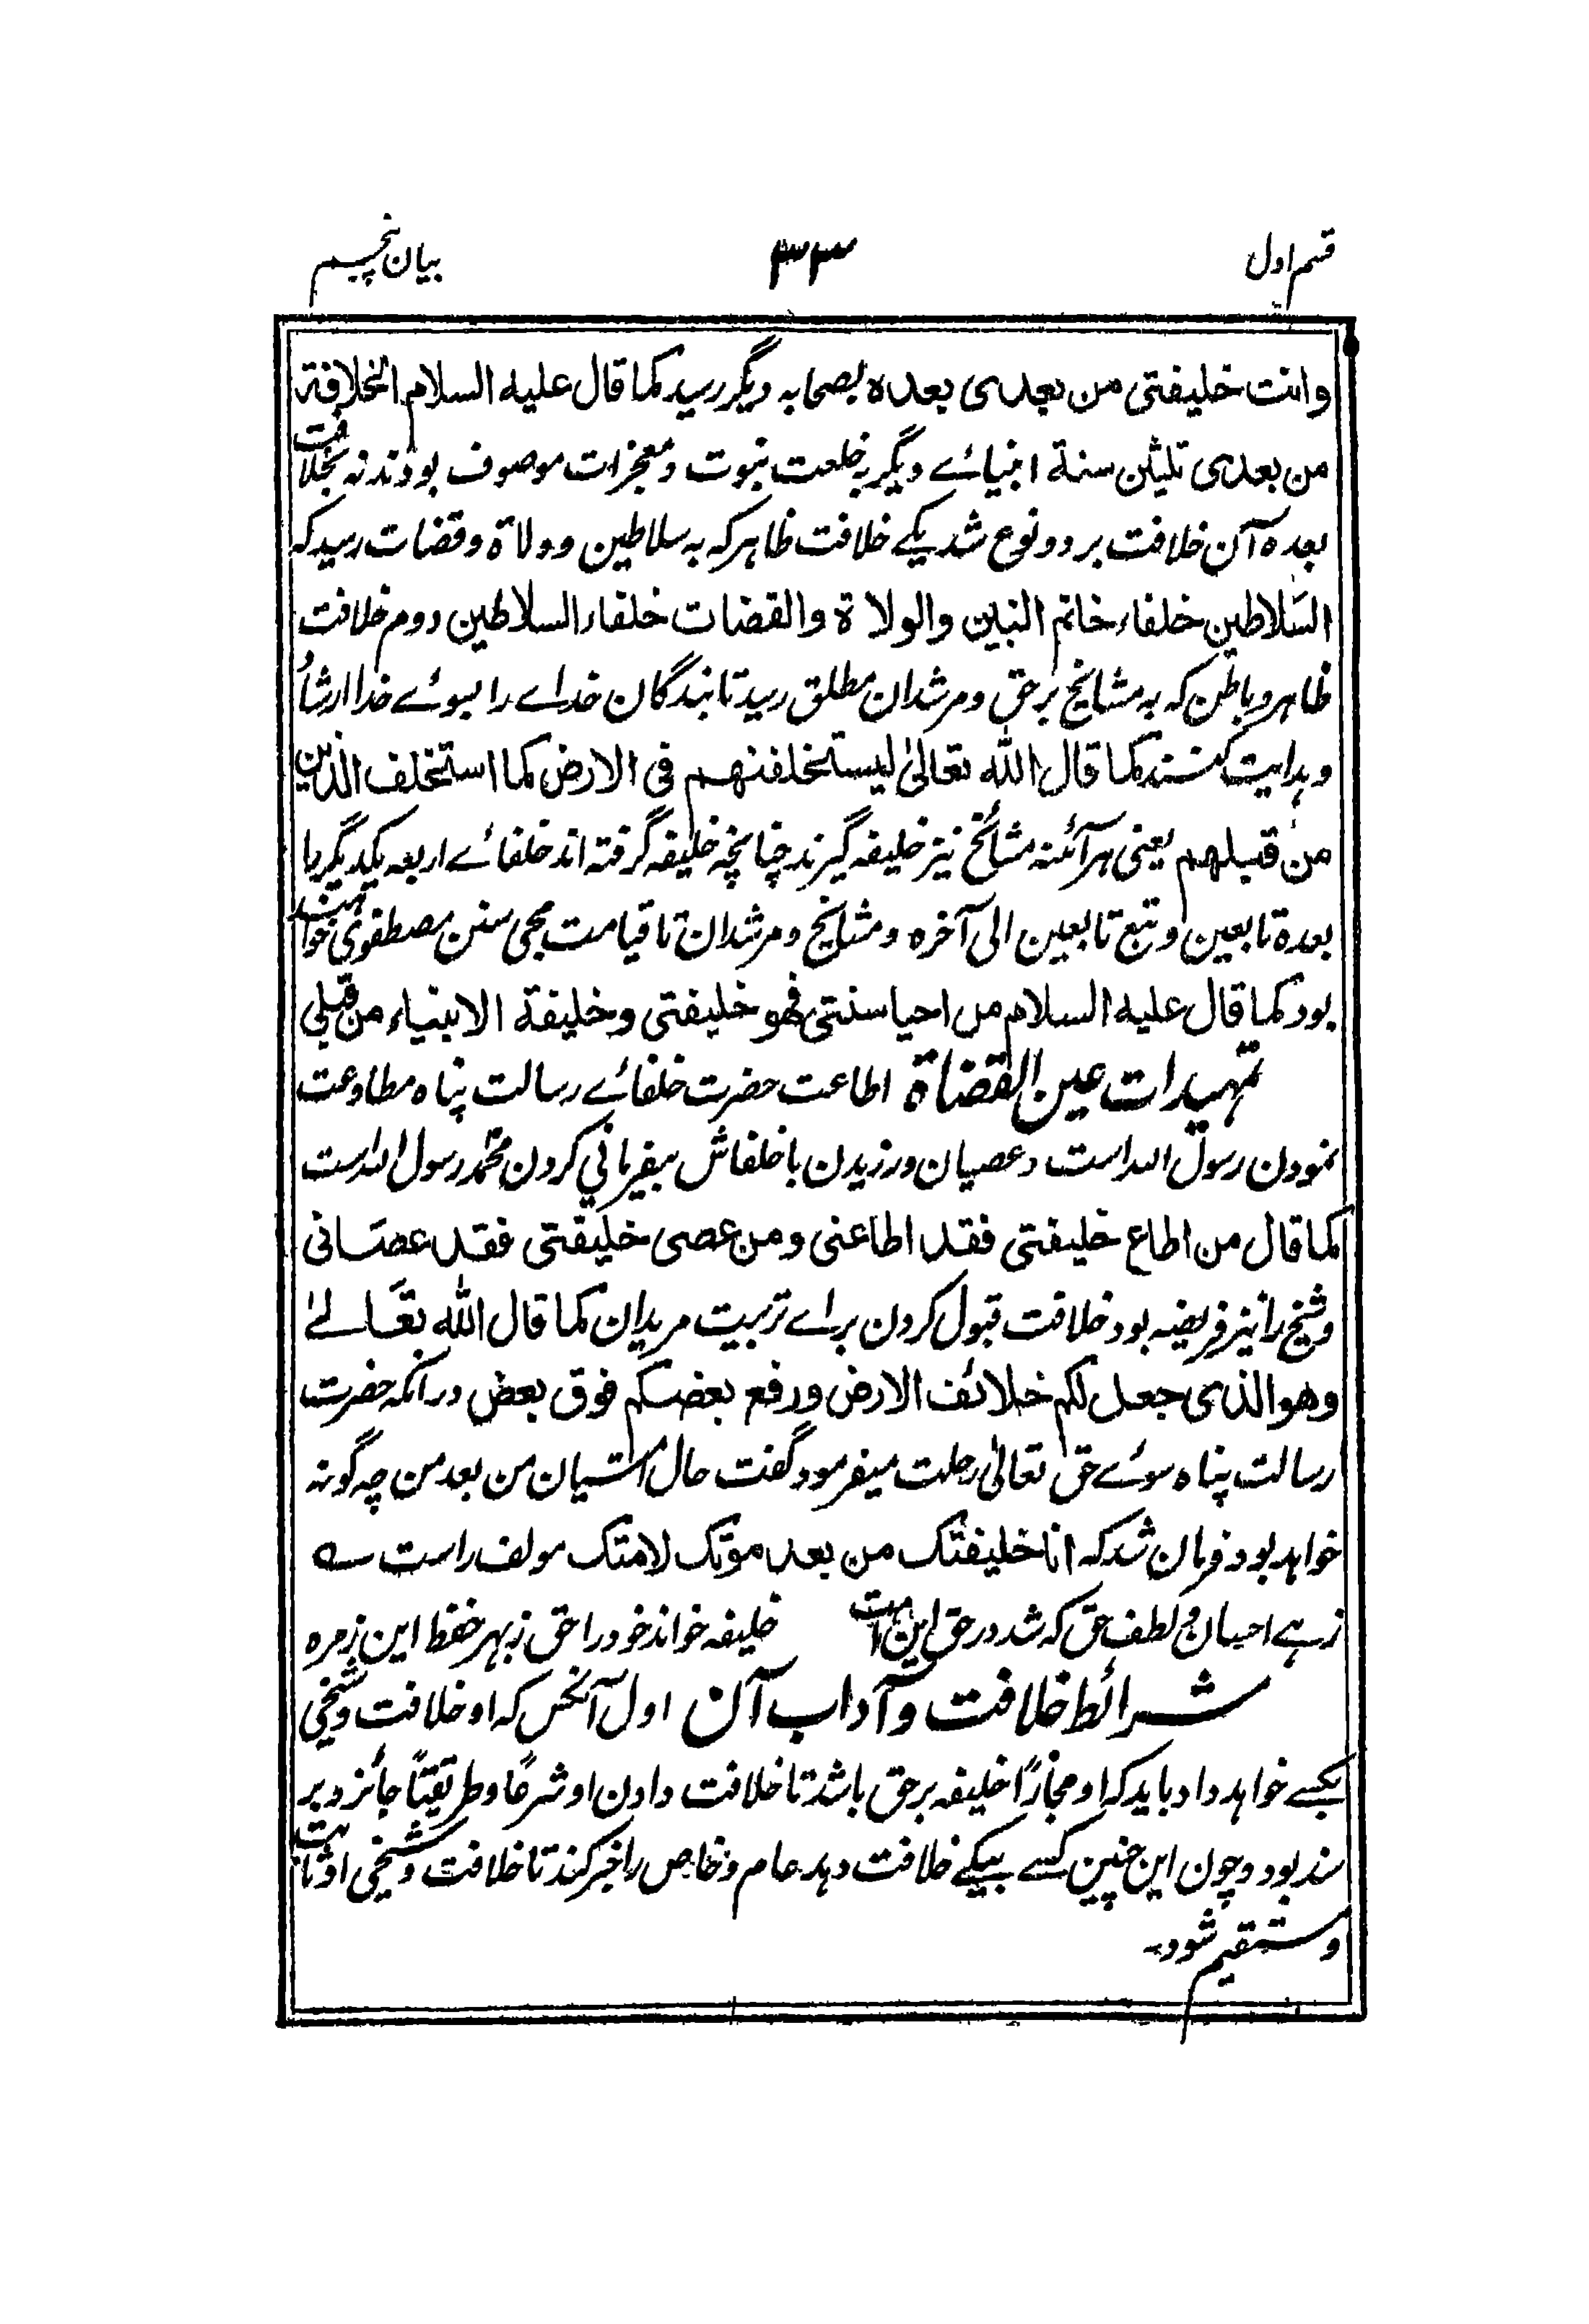 قسم اول
۳۳
بیان پنجم
وانت خلیفتی من بعدی بعده بصحابه دیگر رسید کما قال علیه السلام الخلافة
من بعدی ثلثین سنة انبیائے دیگر به خلعت نبوت و معجزات موصوف بودند نه بخلافت
بعده آن خلافت بر دو نوع شد یکے خلافت ظاهر که به سلاطین و ولاة و قضات رسید که
السلاطین خلفاء خاتم النبین والولاة والقضات خلفاء السلاطین دوم خلافت
ظاهر و باطن که به مشائخ برحق و مرشدان مطلق رسید تا بندگان خداے را بسوئے خدا ارشاد
و هدایت کنند کما قال الله تعالیٰ لیستخلفنهم فی الارض کما استخلف الذین
من قبلهم یعنی هر آئنه مشائخ نیز خلیفه گیرند چنانچه خلیفه گرفته اند خلفائے اربعه یکدیگر را
بعده تابعین و تبع تابعین الی آخره و مشایخ و مرشدان تا قیامت محی سنن مصطفوی خواهند
بود کما قال علیه السلام من احیا سنتی فهو خلیفتی و خلیفة الانبیاء من قبلی
تمهیدات عین القضاة اطاعت حضرت خلفائے رسالت پناه مطاوعت
نمودن رسول الله است و عصیان ورزیدن با خلفاش بیفرمانی کردن محمد رسول الله است
کما قال من اطاع خلیفتی فقد اطاعنی و من عصی خلیفتی فقد عصانی
و شیخ را نیز فریضه بود خلافت قبول کردن براے تربیت مریدان کما قال الله تعالےٰ
وهو الذی جعل لکم خلائف الارض ورفع بعضکم فوق بعض در آنکه حضرت
رسالت پناه سوئے حق تعالیٰ رحلت میفرمود گفت حال امتیان من بعد من چه گونه
خواهد بود فرمان شد که انا خلیفتک من بعد موتک لامتک مولف راست ؎
زهے احسان و لطف حق که شد در حق این امت خلیفه خواند خود را حق ز بهر حفظ این زمره
شرائط خلافت و آداب آن اول آنکس که او خلافت و شیخی
بکسے خواهد داد باید که او مجازاً خلیفه برحق باشد تا خلافت دادن او شرعاً و طریقتاً جائز و بر
سند بود و چون این چنین کسے بیکے خلافت دهد عام و خاص را خبر کند تا خلافت و شیخی او ثابت
و مستقیم شود۔